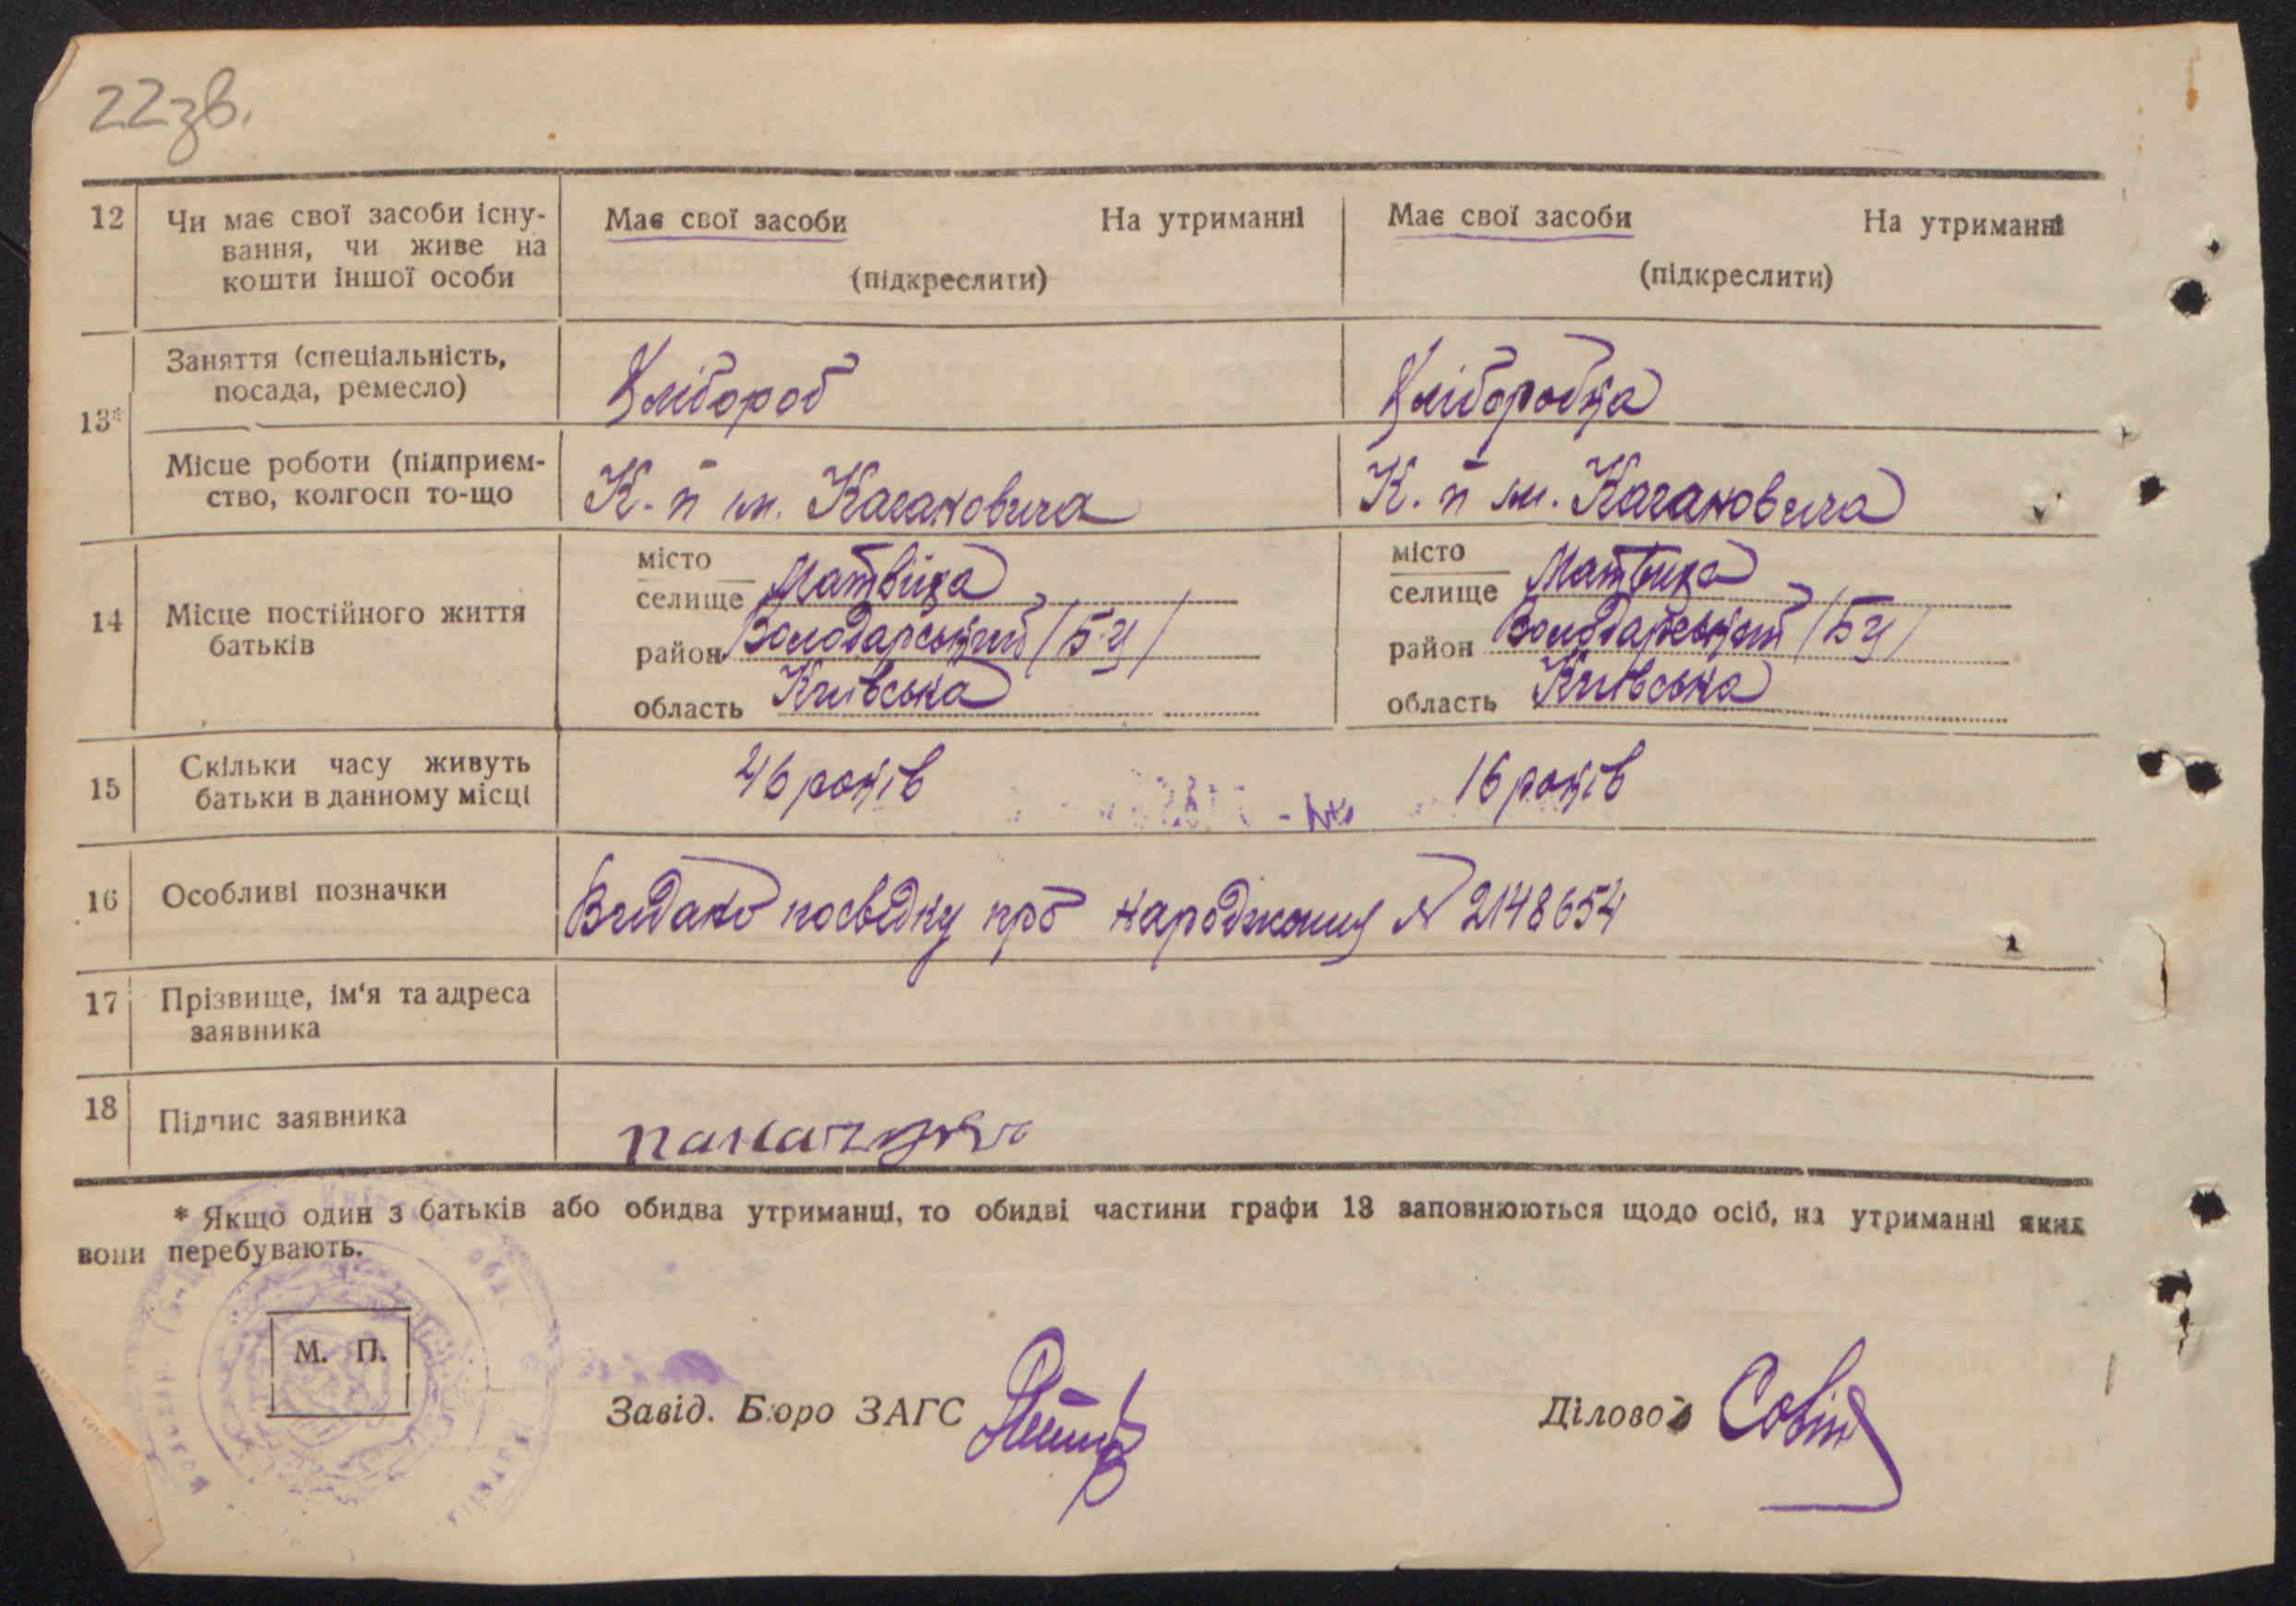 22зв.
12 Чи має свої засоби існу-
вання, чи живе на
кошти іншої особи
Має свої засоби На утриманні
(підкреслити)
Має свої засоби На утриманні
(підкреслити)
13*
Заняття (спеціальність,
посада, ремесло)
Хлібороб
Хліборобка
Місце роботи (підприєм-
ство, колгосп то-що
К-п ім. Кагановича
К-п ім. Кагановича
14 Місце постійного життя
батьків
місто
селище Матвіїха
район Володарський /Б-Ц/
область Київська
місто
селище Матвиха
район Володарський /БЦ/
область Київська
15 Скільки часу живуть
батьки в данному місці
46 років
16 років
16 Особливі позначки
Видано посвідку про народження № 2148654
17 Прізвище, ім'я та адреса
заявника
18 Підпис заявника
* Якщо один з батьків або обидва утриманці, то обидві частини графи 13 заповнюються щодо осіб, на утриманні яких
вони перебувають.
М. П.
Завід. Бюро ЗАГС
Діловод